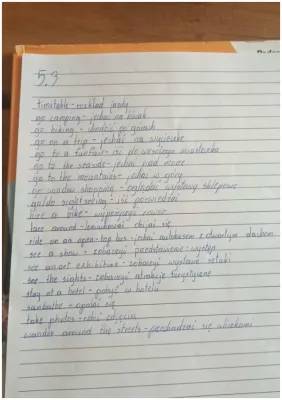 5.3
timetable - rozkład jazdy
go camping - jechać na biwak
go hiking - chodzić po górach
go on a trip - jechać na wycieczkę
go to a funfair - iść do wesołego miasteczka
go to the seaside - jechać nad morze
go to the mountains - jechać w góry
go window shopping - oglądać wystawy sklepowe
go sightseeing - iść pozwiedzać
hire a bike - wypożyczyć rower
laze around -
ride on an open-top bus - jechać autobusem z otwartym dachem
see a show - zobaczyć przedstawienie - występ
see an art exhibition - zobaczyć wystawę sztuki
see the sights - zobaczyć atrakcje turystyczne
stay at a hotel - w hotelu
sunbathe - opalać się
take photos - robić zdjęcia
wander around the streets - przechadzać się uliczkami